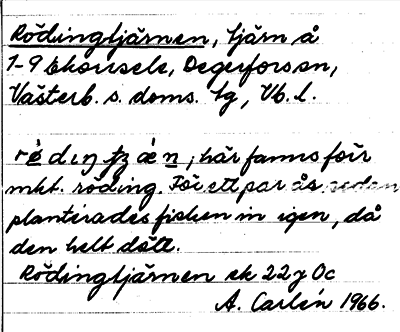 Rödingtjärnen, tjärn å
7-9 Ekorrsele, Degerfors sn,
Västerb. s. doms. lg, Vb. l.
rö̀dıŋʈʂæ̀ṇ, här fanns förr
mkt. röding. För ett par år sedan
planterades fisken in igen, då
den helt dött.
Rödingtjärnen ek 22 J 0c
A. Carlén 1966.